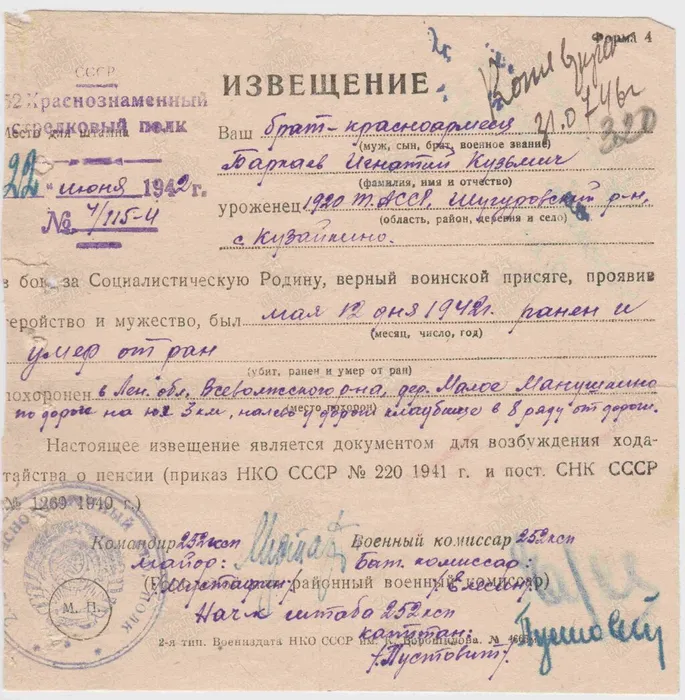 Форма 4
СССР
52 Краснознаменный
стрелковый полк
Место для штампа
22 " июня 1942 г.
№ 4/115-4
ИЗВЕЩЕНИЕ
31.07.46г
320
Ваш брат-красноармеец
(муж, сын, брат, военное звание)
Баркаев Игнатий Кузьмич
(фамилия, имя и отчество)
уроженец 1920 Т.АССР, Шугуровский р-н,
(область, район, деревня и село)
с Кузайкино.
в бою за Социалистическую Родину, верный воинской присяге, проявив
геройство и мужество, был мая 12 дня 1942г. ранен и
(месяц, число, год)
умер от ран
(убит, ранен и умер от ран)
похоронен в Лен. обл, Всеволжского р-на, дер. Малое Манушкино
(место похорон)
по дороге на юг 3 км, налево у дороги кладбище в 8 ряду от дороги.
Настоящее извещение является документом для возбуждения хода-
тайства о пенсии (приказ НКО СССР № 220 1941 г. и пост. СНК СССР
№ 1269 1940 г.)
Командир 252 ксп Военный комиссар 252 ксп
майор: Бат. комиссар:
районный военный комиссар)
/Мустафин/ /Елесин/
Нач штаба 252 ксп
капитан:
/Пустовит/.
М. П.
2-я тип. Воениздата НКО СССР им. К. Ворошилова. №